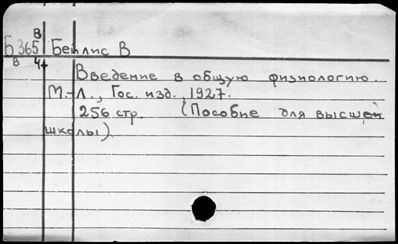 В
Б 365 Бейлис В
в 4
Введение в общую физиологию.
М.-Л., Гос. изд., 1927.
256 стр. (Пособие для высшей
школы).